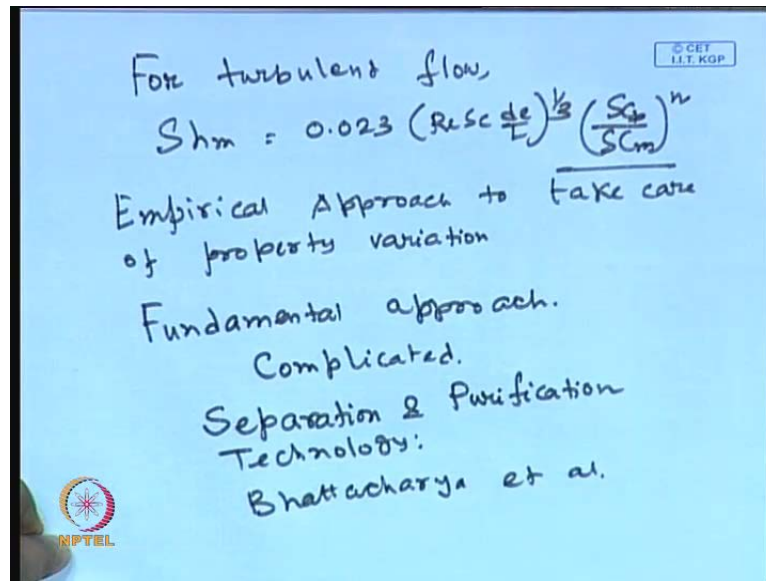 For turbulent flow,
© CET
I.I.T. KGP
Shm = 0.023 (ReSc de/L)^1/3 (Scb/Scm)^n
Empirical Approach to take care
of property variation
Fundamental approach.
Complicated.
Separation & Purification
Technology:
Bhattacharya et al.
NPTEL